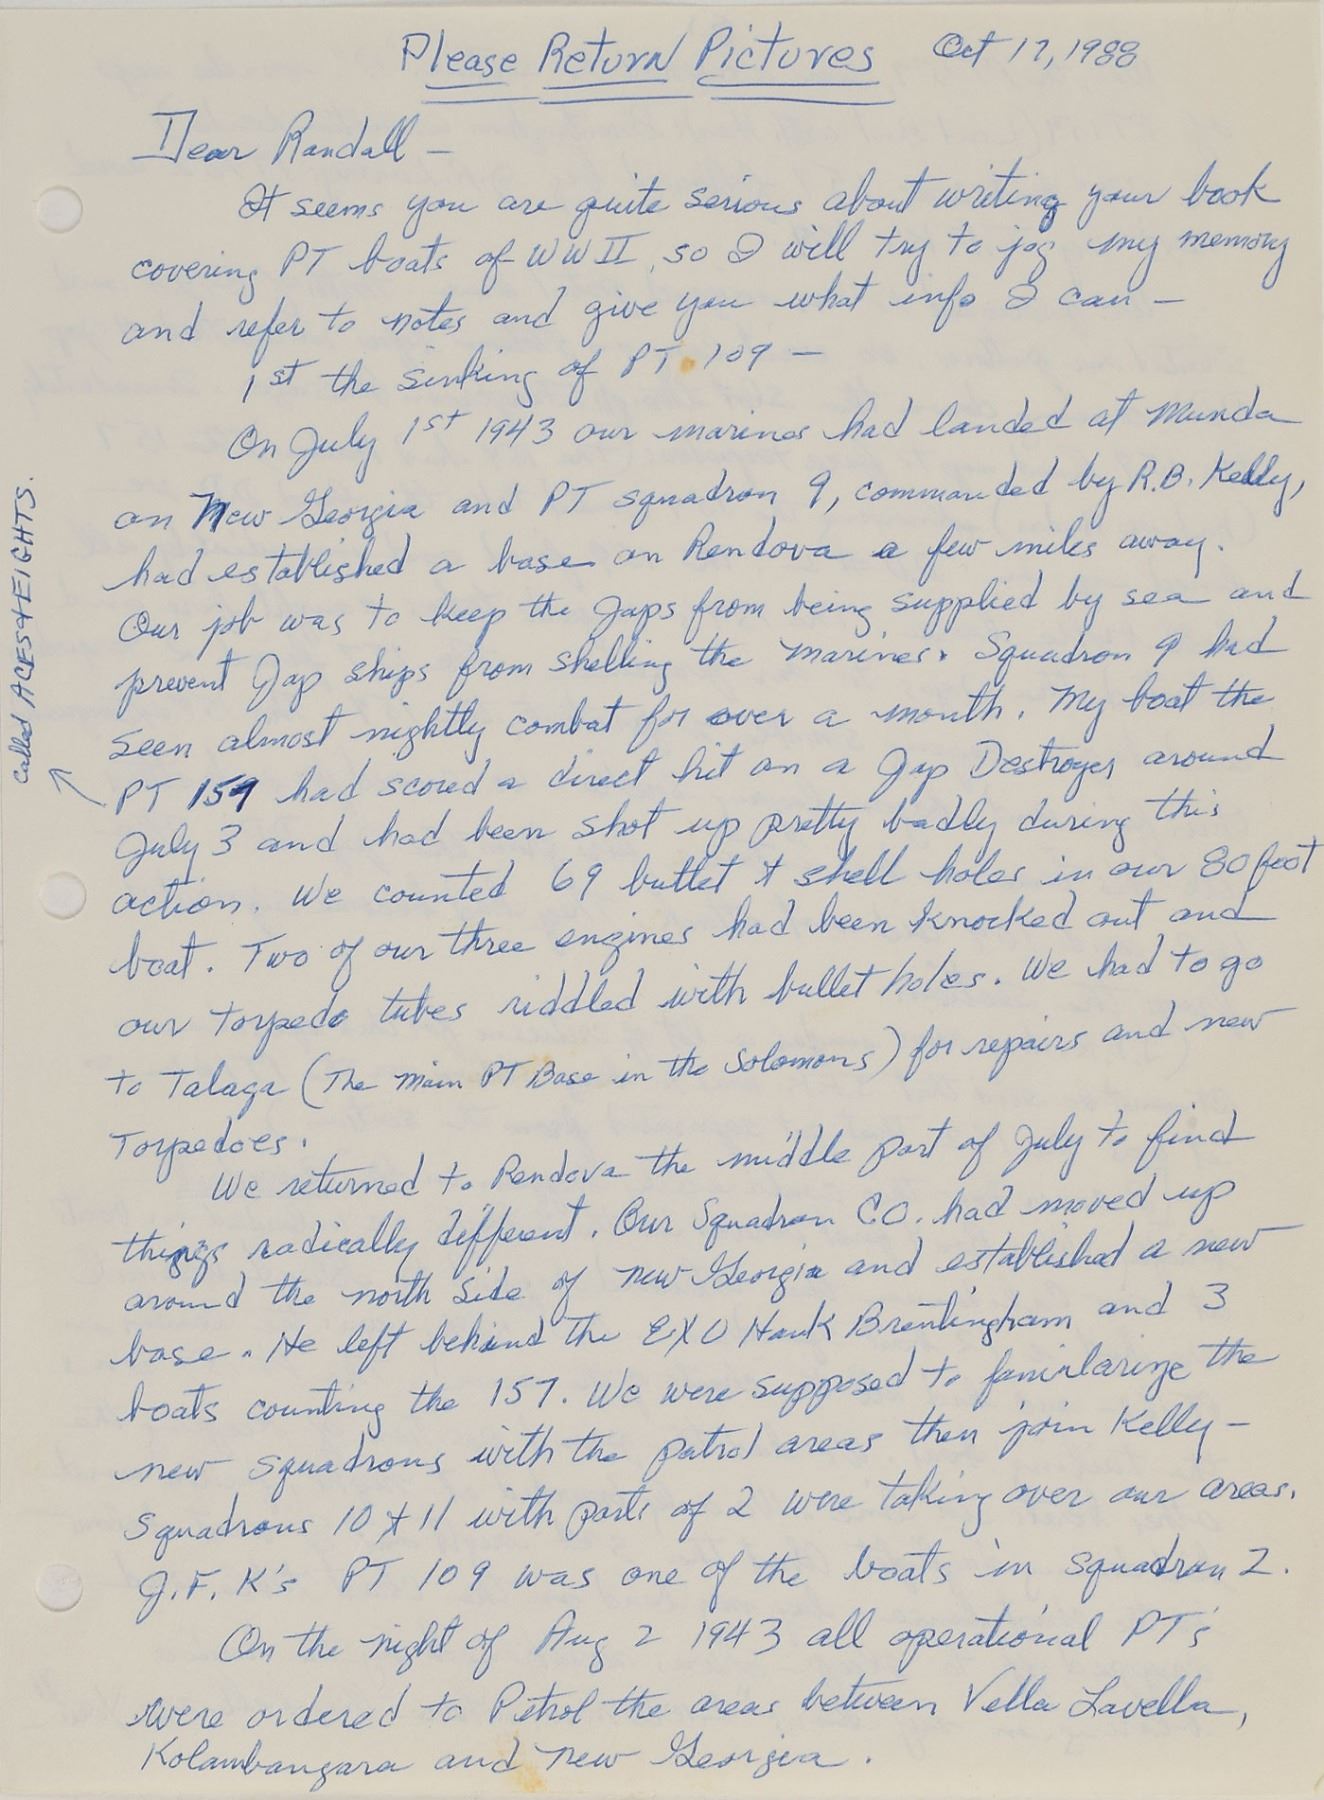 Please Return Pictures Oct 17, 1988
Dear Randall —
It seems you are quite serious about writing your book
covering PT boats of WWII, so I will try to jog my memory
and refer to notes and give you what info I can —
1st the sinking of PT 109 —
On July 1st 1943 our marines had landed at Munda
on New Georgia and PT squadron 9, commanded by R.B. Kelly,
had established a base on Rendova a few miles away.
Our job was to keep the Japs from being supplied by sea and
prevent Jap ships from shelling the marines. Squadron 9 had
seen almost nightly combat for over a month. My boat the
PT 159 had scored a direct hit on a Jap Destroyer around
July 3 and had been shot up pretty badly during this
action. We counted 69 bullet & shell holes in our 80 foot
boat. Two of our three engines had been knocked out and
our torpedo tubes riddled with bullet holes. We had to go
to Talaga (The main PT Base in the Solomons) for repairs and new
Torpedoes.
We returned to Rendova the middle part of July to find
things radically different. Our Squadron CO. had moved up
around the north side of New Georgia and established a new
base. He left behind the EXO Hank Brentingham and 3
boats counting the 157. We were supposed to familarize the
new squadrons with the patrol areas then join Kelly —
Squadrons 10 & 11 with parts of 2 were taking over our areas.
J.F.K's PT 109 was one of the boats in squadron 2.
On the night of Aug 2 1943 all operational PT's
were ordered to Petrol the areas between Vella Lavella,
Kolambangara and New Georgia.
Called ACES & EIGHTS.